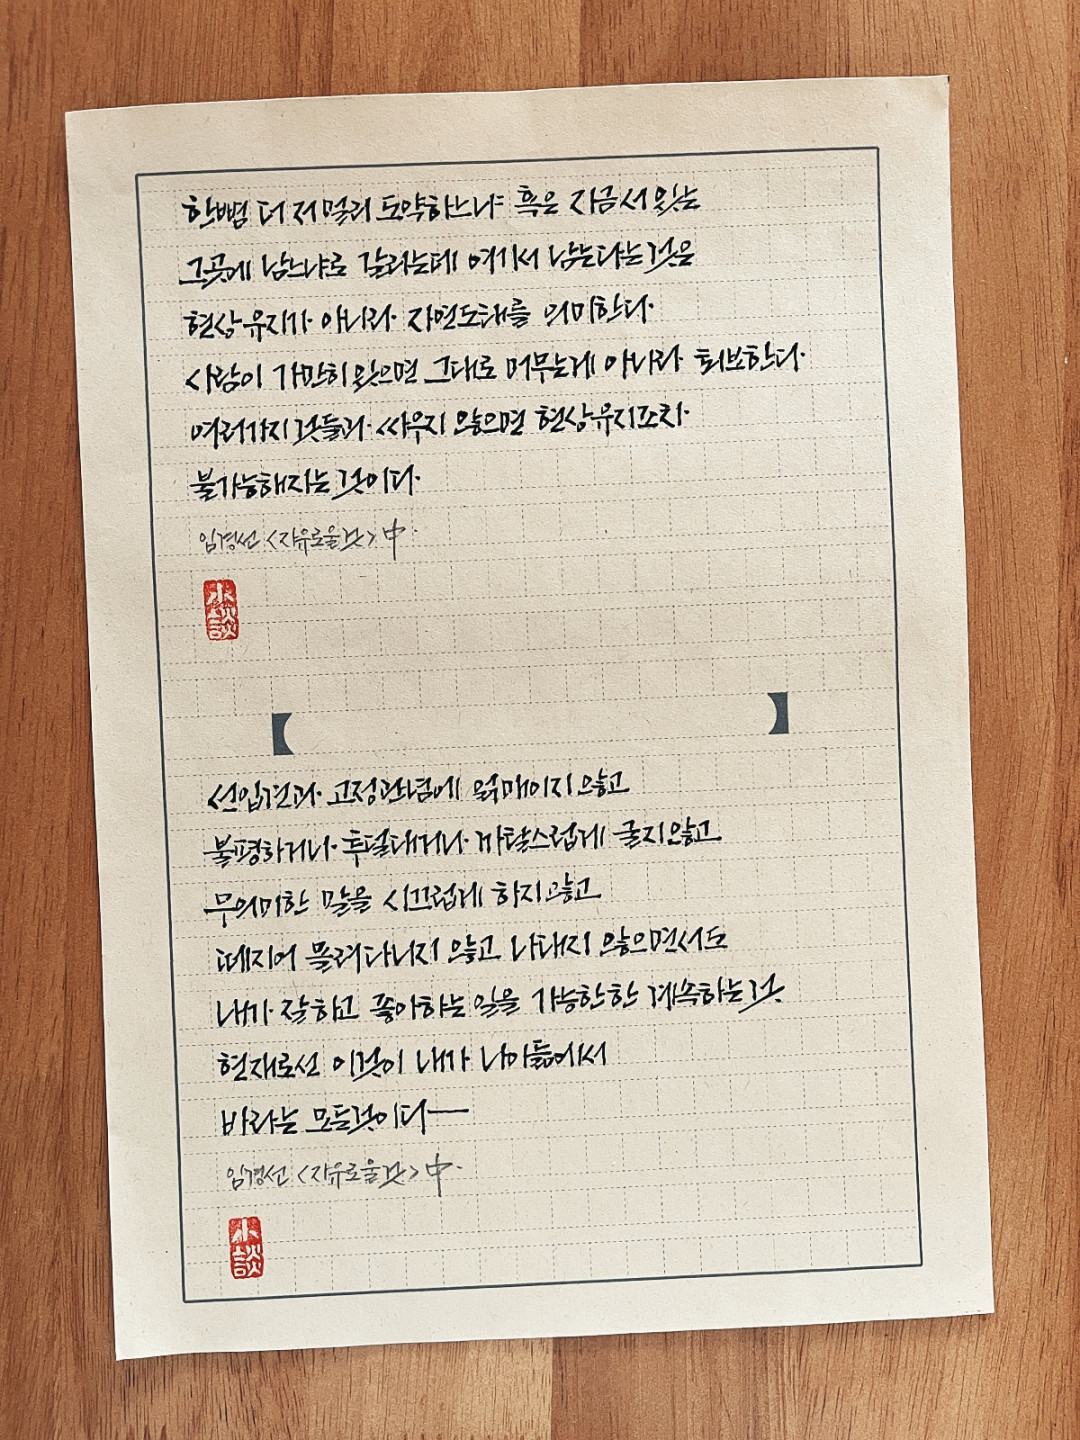 한뼘 더 저 멀리 도약하느냐 혹은 지금 서있는
그곳에 남느냐로 갈리는데 여기서 남는다는 것은
현상유지가 아니라 자연도태를 의미한다.
사람이 가만히 있으면 그대로 머무는게 아니라 퇴보한다.
여러가지 것들과 싸우지 않으면 현상유지조차
불가능해지는 것이다.
임경선 <자유로울 것> 中.
小談
선입견과 고정관념에 얽매이지 않고
불평하거나 투덜대거나 까탈스럽게 굴지 않고
무의미한 말을 시끄럽게 하지 않고
떼지어 몰려다니지 않고 나대지 않으면서도
내가 잘하고 좋아하는 일을 가능한한 계속하는 것.
현재로선 이것이 내가 나이듦에서
바라는 모든것이다—
임경선 <자유로울 것> 中.
小談